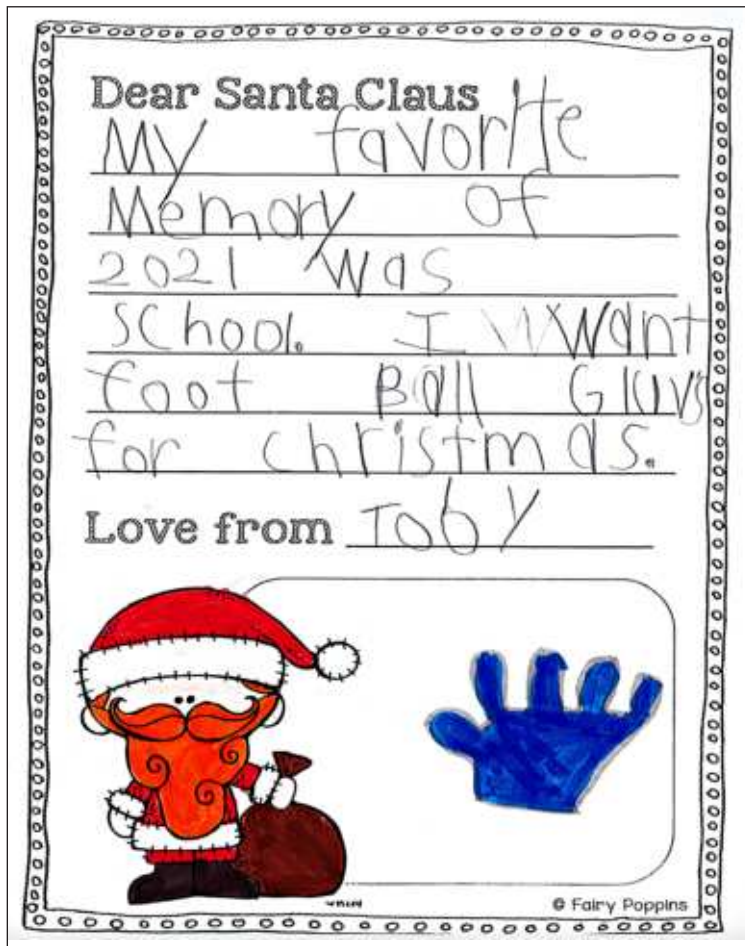 Dear Santa Claus
My favorite
Memory of
2021 was
school. I want
foot Ball Gluvs
for christmas.
Love from Toby
© Fairy Poppins